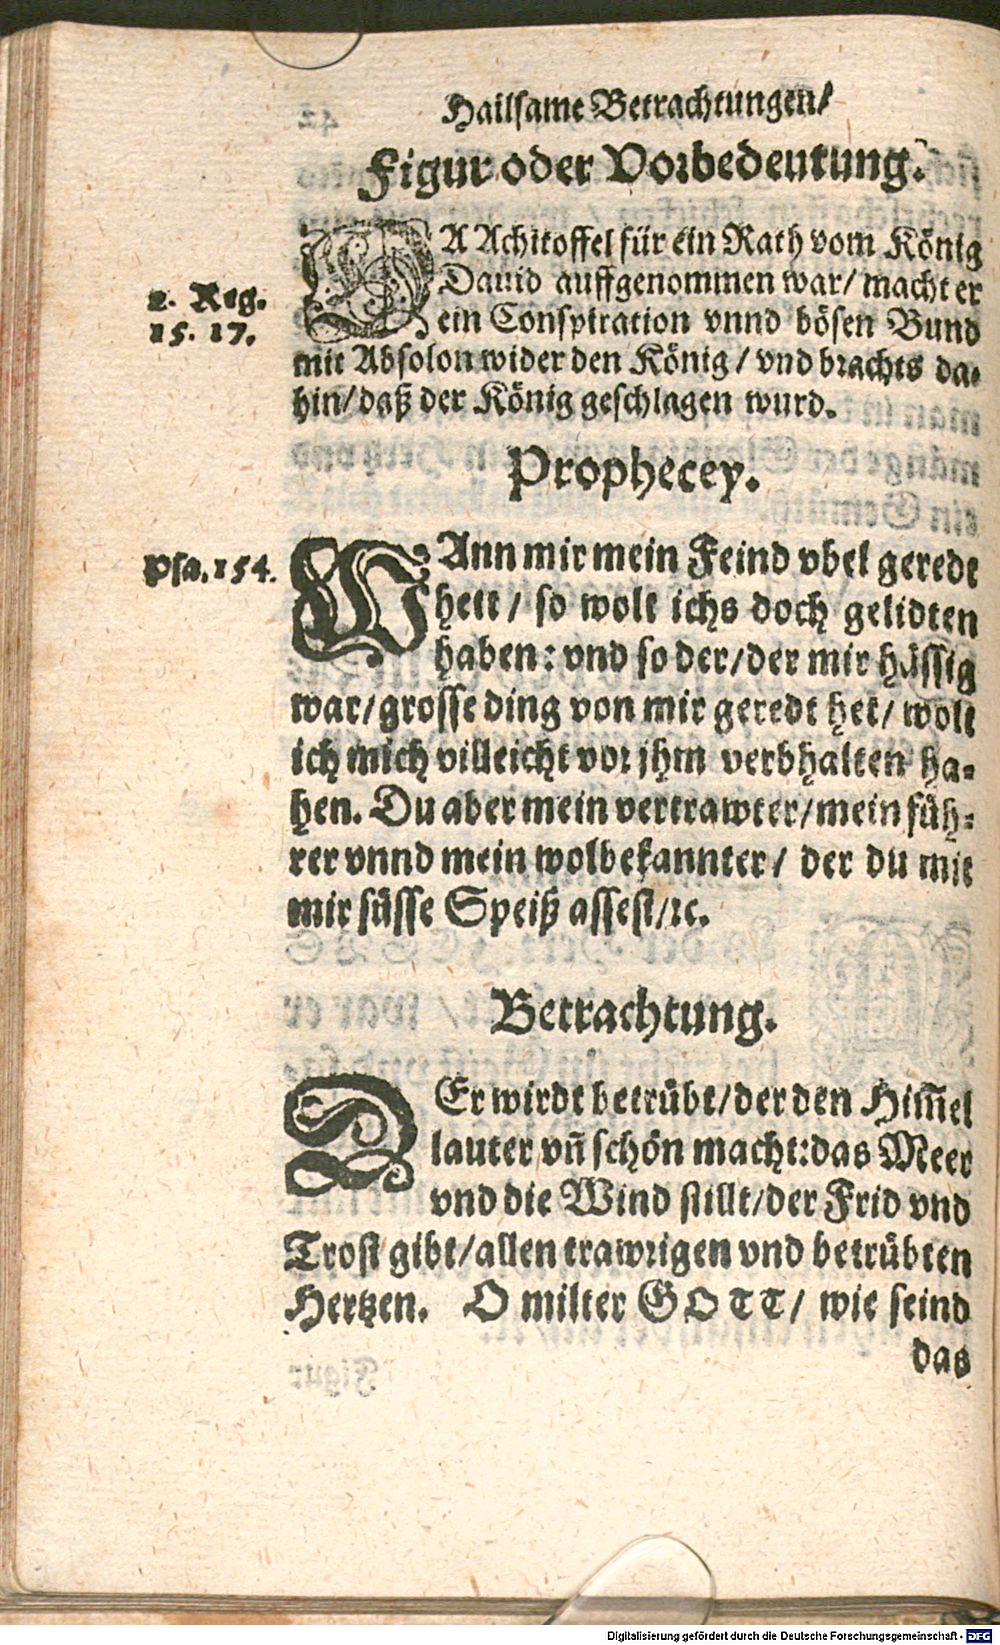 Hailsame Betrachtungen/
Figur oder Vorbedeutung.
DA Achitoffel für ein Rath vom König
Dauid auffgenommen war/ macht er
2. Reg.
15. 17.
ein Conspiration vnnd bösen Bund
mit Absolon wider den König/ vnd brachts da-
hin/ daß der König geschlagen wurd.
Prophecey.
Psa. 154.
WAnn mir mein Feind vbel geredt
hett/ so wolt ichs doch gelidten
haben: vnd so der/ der mir hässig
war/ grosse ding von mir geredt het/ wolt
ich mich villeicht vor jhm verbhalten ha-
hen. Du aber mein vertrawter/ mein füh-
rer vnnd mein wolbekannter/ der du mit
mir süsse Speiß assest/ ꝛc.
Betrachtung.
DEr wirdt betrübt/ der den Him̃el
lauter vñ schön macht: das Meer
vnd die Wind stillt/ der Frid vnd
Trost gibt/ allen trawrigen vnd betrübten
Hertzen. O milter GOTT/ wie seind
das
Digitalisierung gefördert durch die Deutsche Forschungsgemeinschaft - DFG